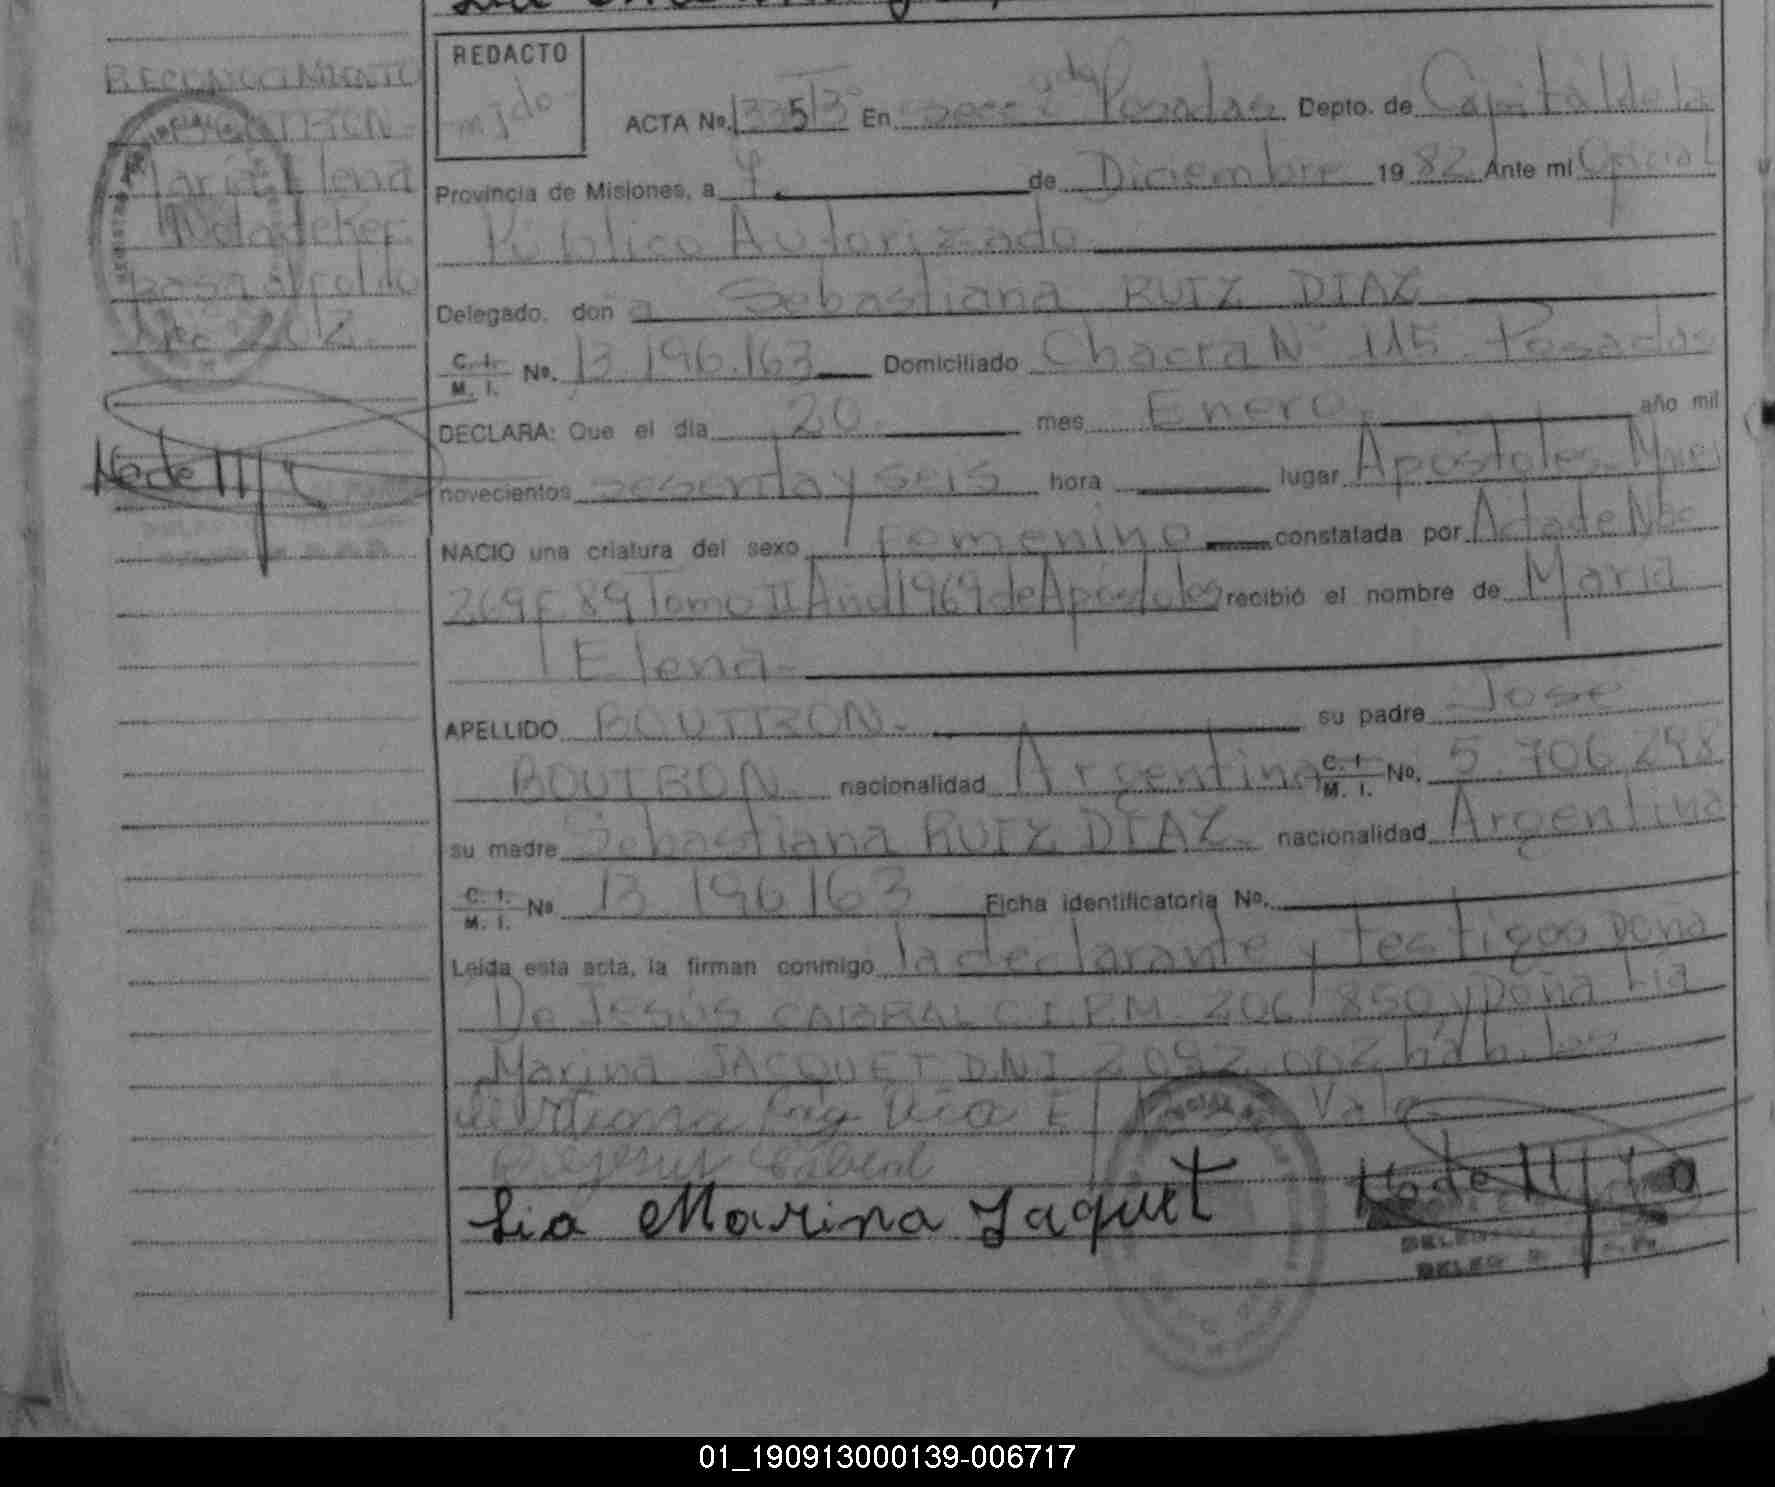 REDACTO
ACTA Nº. En Secc 2da Posadas Depto. de Capital de la
Provincia de Misiones, a 7 de Diciembre 1982 Ante mi Oficial
Público Autorizado
Delegado, don a Sebastiana RUIZ DIAZ
C. I. M. I. Nº. 13.196.163 Domiciliado Chacra Nº 115 - Posadas
DECLARA: Que el día 20 mes Enero año mil
novecientos sesenta y seis hora lugar Apóstoles Mnes
NACIO una criatura del sexo femenino constatada por Acta de Nac
269 F 89 Tomo II Año 1969 de Apóstoles recibió el nombre de María
Elena
APELLIDO BOUTRON. su padre José
BOUTRON nacionalidad Argentina C. I. M. I. Nº. 5.706.298
su madre Sebastiana RUIZ DIAZ nacionalidad Argentina
C. I. M. I. Nº 13 196 163 Ficha identificatoria Nº.
Leída esta acta, la firman conmigo la declarante y testigos Doña
De Jesús CABRAL C.I.P.M. 206.850 y Doña Lia
Marina JACQUET D.N.I. 2.092.002 hábiles
Vale
Dejesus Cabral
Lia Marina Jaquet
RECONOCIMIENTO
BOUTRON
María Elena
Nota de Ref.
pasa al folio
01_190913000139-006717